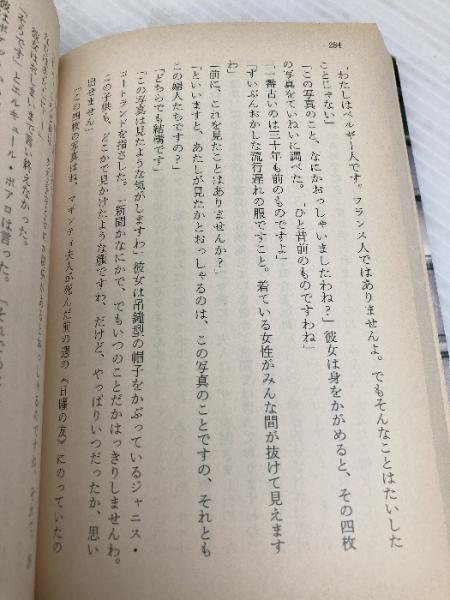 284
「わたしはベルギー人です。フランス人ではありませんよ。でもそんなことはたいした
ことじゃない」
「この写真のこと、なにかおっしゃいましたわね?」彼女は身をかがめると、その四枚
の写真をていねいに調べた。「ひと昔前のものですわね」
「一番古いのは三十年も前のものですよ」
「ずいぶんおかしな流行遅れの服ですこと。着ている女性がみんな間が抜けて見えます
わ」
「前に、これを見たことはありませんか?」
「といいますと、あたしが見たかとおっしゃるのは、この写真のことですの、それとも
この婦人たちですの?」
「どちらでも結構です」
「この写真は見たような気がしますわ」彼女は吊鐘型の帽子をかぶっているジャニス・
コートランドを指さした。「新聞かなにかで、でもいつのことだかはっきりしませんわ。
この子供も、どこかで見かけたような顔ですわ、だけど、やっぱりいつだったか、思い
出せません」
「この四枚の写真はね、マギンティ夫人が死んだ前の週の《日曜の友》にのっていたの
彼女はおしまいまで言い終えなかった。
「そうです」とエルキュール・ポアロは言った。「それで